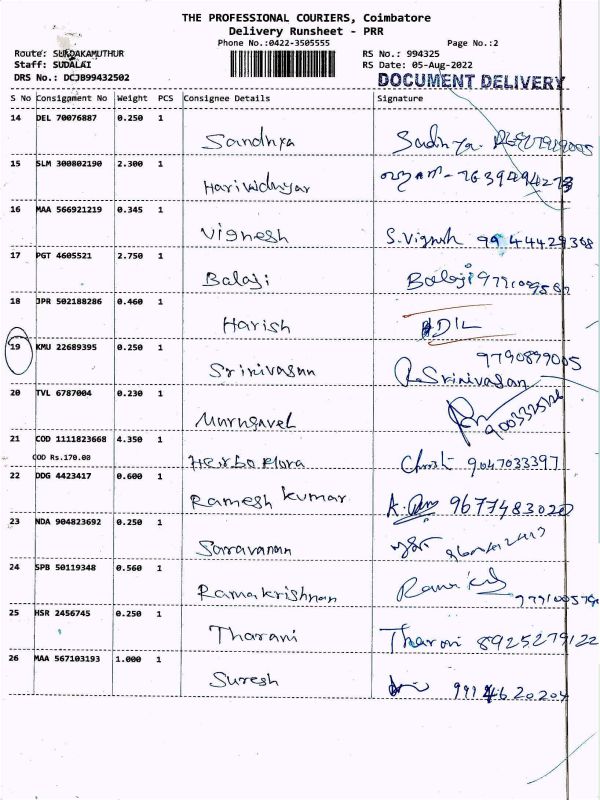 THE PROFESSIONAL COURIERS, Coimbatore
Delivery Runsheet - PRR
Phone No.:0422-3505555 Page No.:2
Route: SUNDAKAMUTHUR RS No.: 994325
Staff: SUDALAI RS Date: 05-Aug-2022
DRS No.: DCJB99432502 DOCUMENT DELIVERY
S No Consignment No Weight PCS Consignee Details Signature
14 DEL 70076887 0.250 1
Sandhya
15 SLM 300802190 2.300 1
Harividhyar
16 MAA 566921219 0.345 1
Vignesh S.Vignesh 9944429368
17 PGT 4605521 2.750 1
Balaji Balaji
18 JPR 502188286 0.460 1
Harish
19 KMU 22689395 0.250 1 9790899005
Srinivasan R.Srinivasan
20 TVL 6787004 0.230 1
Murugavel
21 COD 1111823668 4.350 1
COD Rs.170.00 Herbo Flora 9047033397
22 DDG 4423417 0.600 1
Ramesh kumar 9677483020
23 NDA 904823692 0.250 1
Saravanan
24 SPB 50119348 0.560 1
Ramakrishnan
25 HSR 2456745 0.250 1
Tharani Tharani 8925279122
26 MAA 567103193 1.000 1
Suresh 9994620204